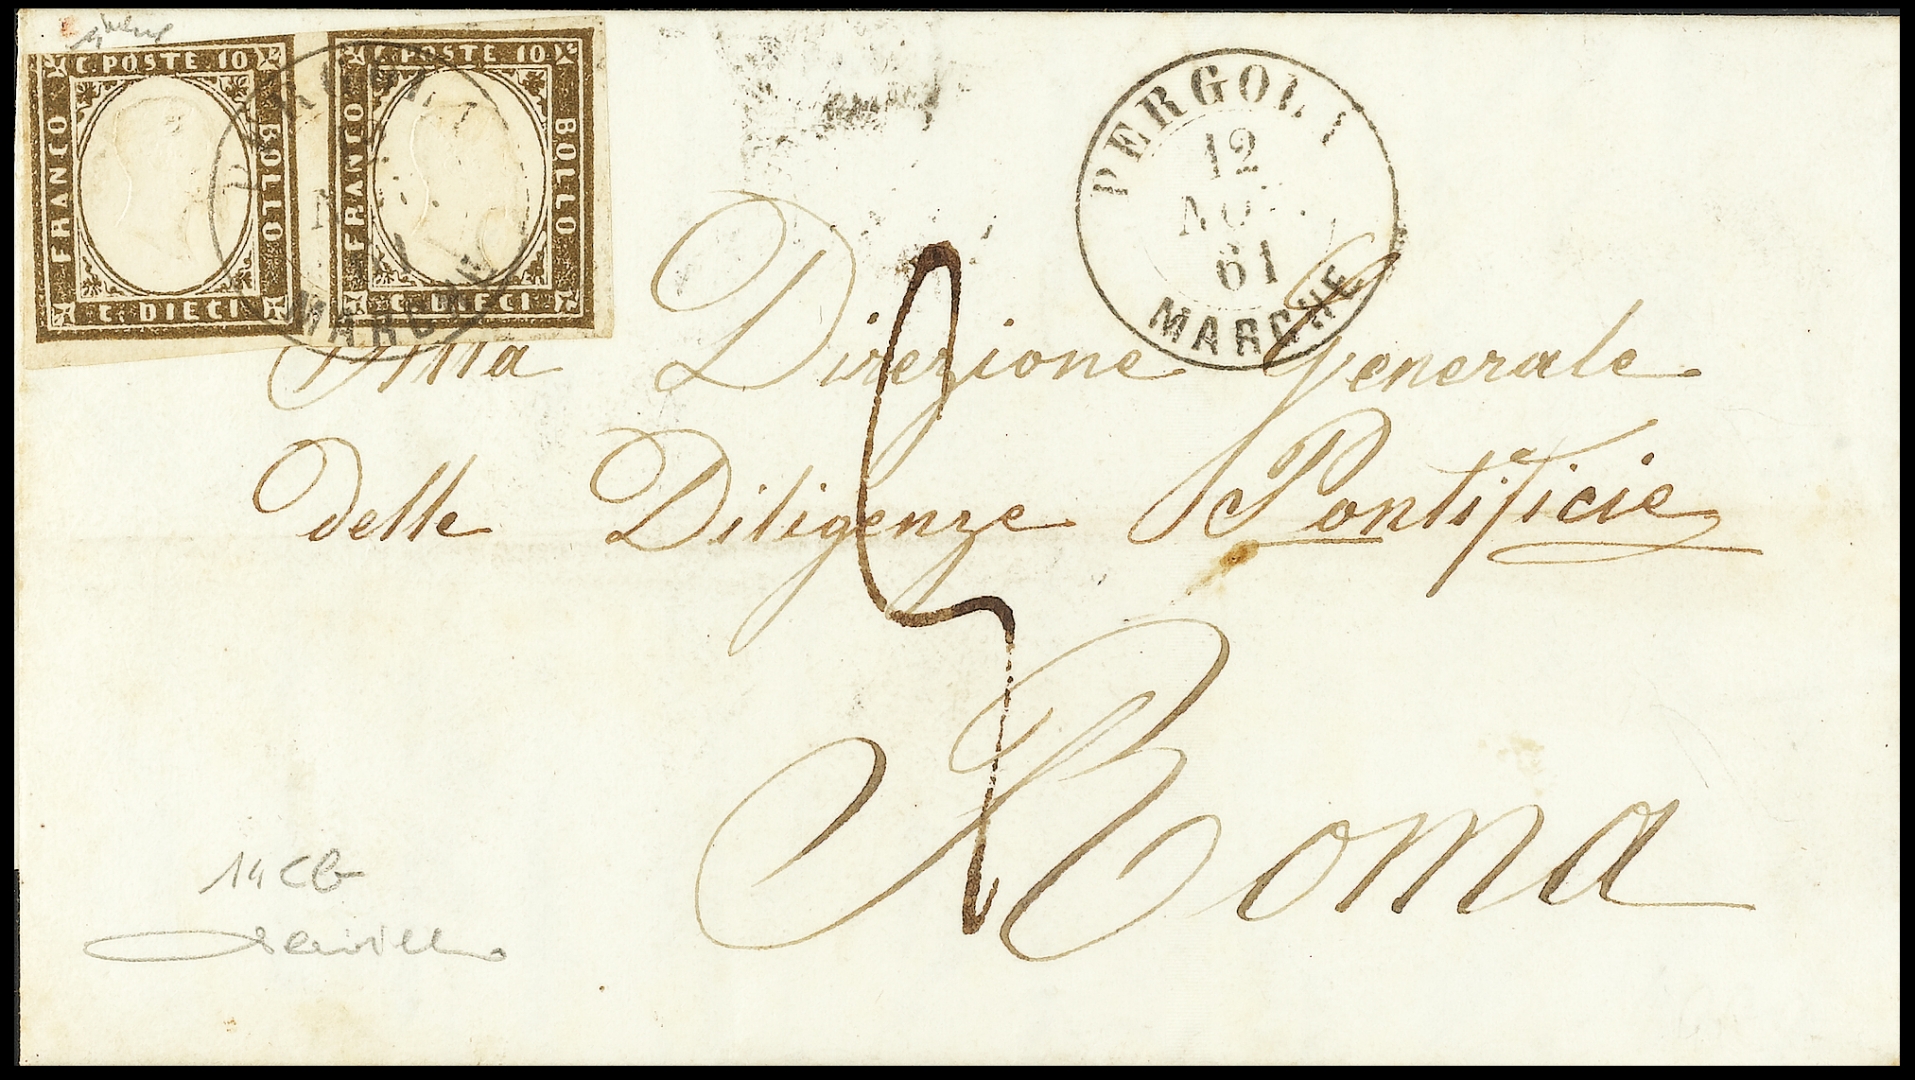 C. POSTE 10
FRANCO
BOLLO
C. DIECI
C. POSTE 10
FRANCO
BOLLO
C. DIECI
MARCHE
PERGOLA
12
61
MARCHE
Alla Direzione Generale
delle Diligenze Pontificie
Roma